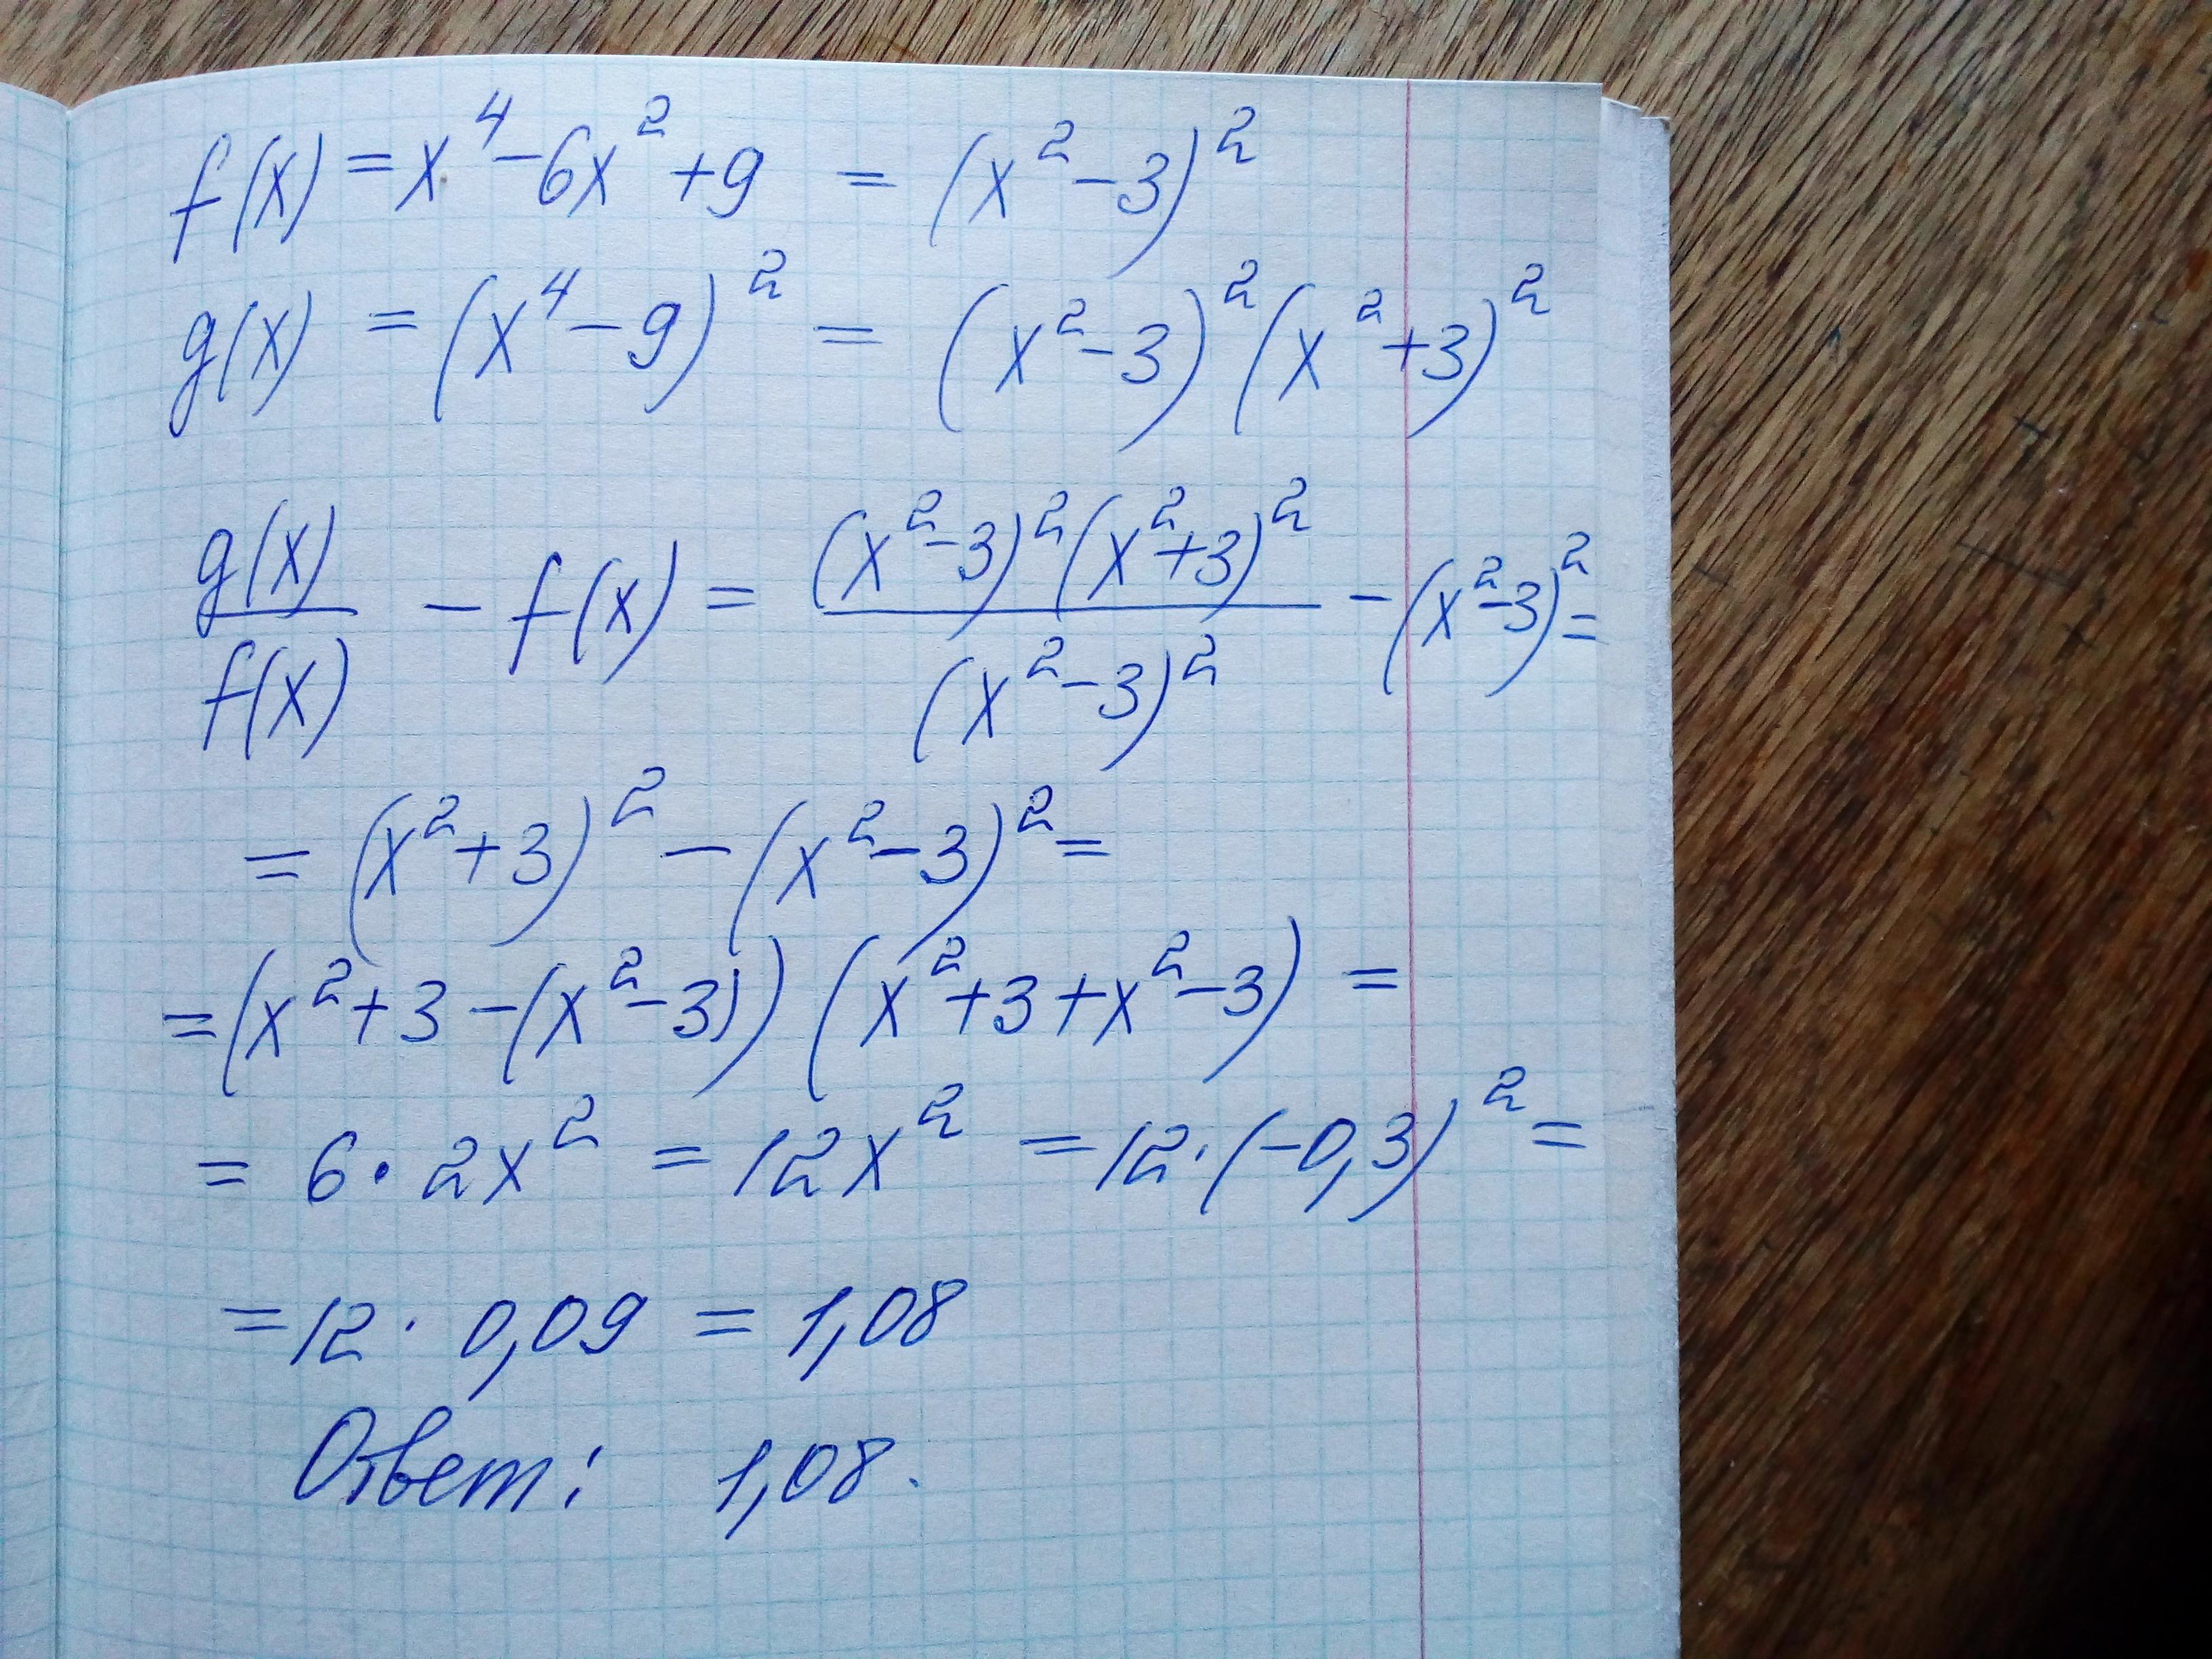 f(x) = x⁴ - 6x² + 9 = (x² - 3)²
g(x) = (x⁴ - 9)² = (x² - 3)² (x² + 3)²
g(x)/f(x) - f(x) = (x² - 3)² (x² + 3)² / (x² - 3)² - (x² - 3)² =
= (x² + 3)² - (x² - 3)² =
= (x² + 3 - (x² - 3)) (x² + 3 + x² - 3) =
= 6 · 2x² = 12x² = 12 · (-0,3)² =
= 12 · 0,09 = 1,08
Ответ: 1,08.